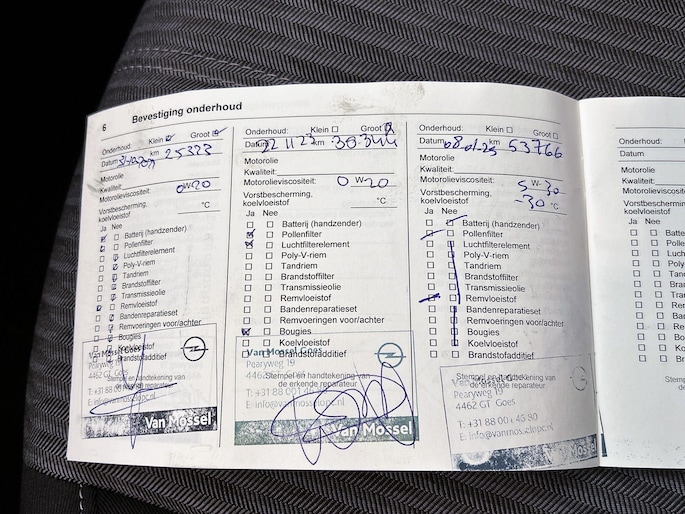 6 Bevestiging onderhoud
Onderhoud: Klein Groot
Datum km 25323
Motorolie
Kwaliteit:
Motorolieviscositeit: 0W-20
Vorstbescherming, koelvloeistof °C
Ja Nee
Batterij (handzender)
Pollenfilter
Luchtfilterelement
Poly-V-riem
Tandriem
Brandstoffilter
Transmissieolie
Remvloeistof
Bandenreparatieset
Remvoeringen voor/achter
Bougies
Koelvloeistof
Brandstofadditief
Van Mossel Goes
Pearyweg 19
4462 GT Goes
Stempel en handtekening van
de erkende reparateur
T: +31 88 00
E: info@vanmosselopc.nl
Van Mossel
Onderhoud: Klein Groot
Datum 22 11 23 km 30.344
Motorolie
Kwaliteit:
Motorolieviscositeit: 0 W-20
Vorstbescherming, koelvloeistof °C
Ja Nee
Batterij (handzender)
Pollenfilter
Luchtfilterelement
Poly-V-riem
Tandriem
Brandstoffilter
Transmissieolie
Remvloeistof
Bandenreparatieset
Remvoeringen voor/achter
Bougies
Koelvloeistof
Brandstofadditief
Van Mossel Goes
Pearyweg 19
4462
Stempel en handtekening van
de erkende reparateur
T: +31 88 001 45
E: info@vanmosselopc.nl
Van Mossel
Onderhoud: Klein Groot
Datum 08-01-25 km 53766
Motorolie
Kwaliteit:
Motorolieviscositeit: 5 W-30
Vorstbescherming, koelvloeistof -30 °C
Ja Nee
Batterij (handzender)
Pollenfilter
Luchtfilterelement
Poly-V-riem
Tandriem
Brandstoffilter
Transmissieolie
Remvloeistof
Bandenreparatieset
Remvoeringen voor/achter
Bougies
Koelvloeistof
Brandstofadditief
Stempel en handtekening van
de erkende reparateur
Pearyweg 19
4462 GT Goes
T: +31 88 00 45 90
E: info@vanmosselopc.nl
Van Mossel
Onderhoud:
Datum
Motorolie
Kwaliteit:
Motorolieviscosite
Vorstbescherming, koelvloeistof
Ja Nee
Batte
Polle
Lucht
Poly-
Tandr
Brand
Trans
Remv
Band
Remv
Boug
Koelv
Brand
Stempel
de